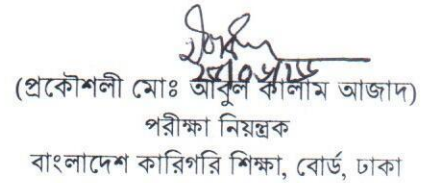 (প্রকৌশলী মোঃ আবুল কালাম আজাদ)
পরীক্ষা নিয়ন্ত্রক
বাংলাদেশ কারিগরি শিক্ষা, বোর্ড, ঢাকা